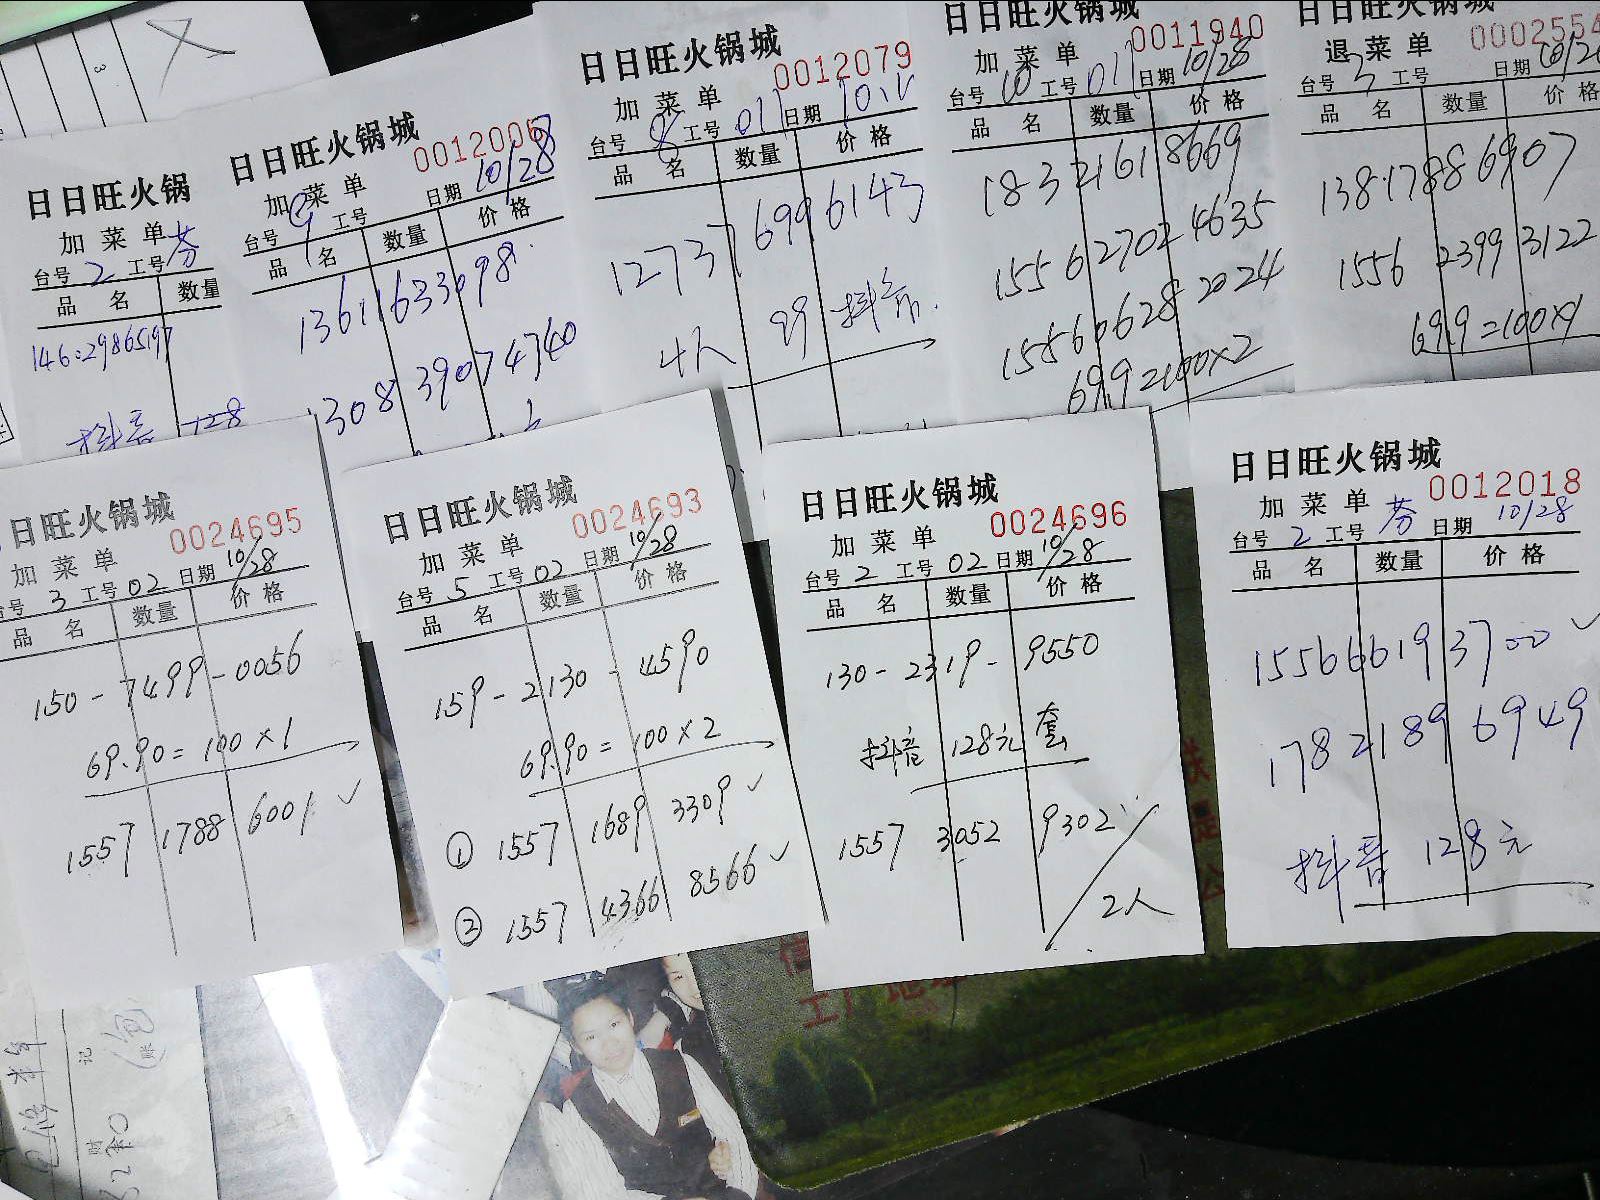 日日旺火锅
加菜单
台号 2 工号 芬
品名 数量
抖音 128
日日旺火锅城
0012006
加菜单
台号 9 工号 日期 10/28
品名 数量 价格
13611633098
1308 3907 4740
日日旺火锅城
0012079
加菜单
台号 8 工号 011 日期
品名 数量 价格
12737 699 6143
4人 99 抖音
日日旺火锅城
0011940
加菜单
台号 10 工号 011 日期 10/28
品名 数量 价格
183 2161 8669
1556 2702 4635
1556 0628 2024
69.9=100×2
日日旺火锅城
0002554
退菜单
台号 3 工号 日期
品名 数量 价格
138.1788 6907
1556 2399 3122
69.9=100×1
日日旺火锅城
0024695
加菜单
台号 3 工号 02 日期 10/28
品名 数量 价格
150-7499-0056
69.90=100×1
1557 1788 6001 ✓
日日旺火锅城
0024693
加菜单
台号 5 工号 02 日期 10/28
品名 数量 价格
159-2130-4590
69.90=100×2
① 1557 1689 3309 ✓
② 1557 4366 8566 ✓
日日旺火锅城
0024696
加菜单
台号 2 工号 02 日期 10/28
品名 数量 价格
130-2319-9550
抖音 128元 套
1557 3052 9302
2人
日日旺火锅城
0012018
加菜单
台号 2 工号 芬 日期 10/28
品名 数量 价格
1556 6619 3700 ✓
178 2189 6949
抖音 128元